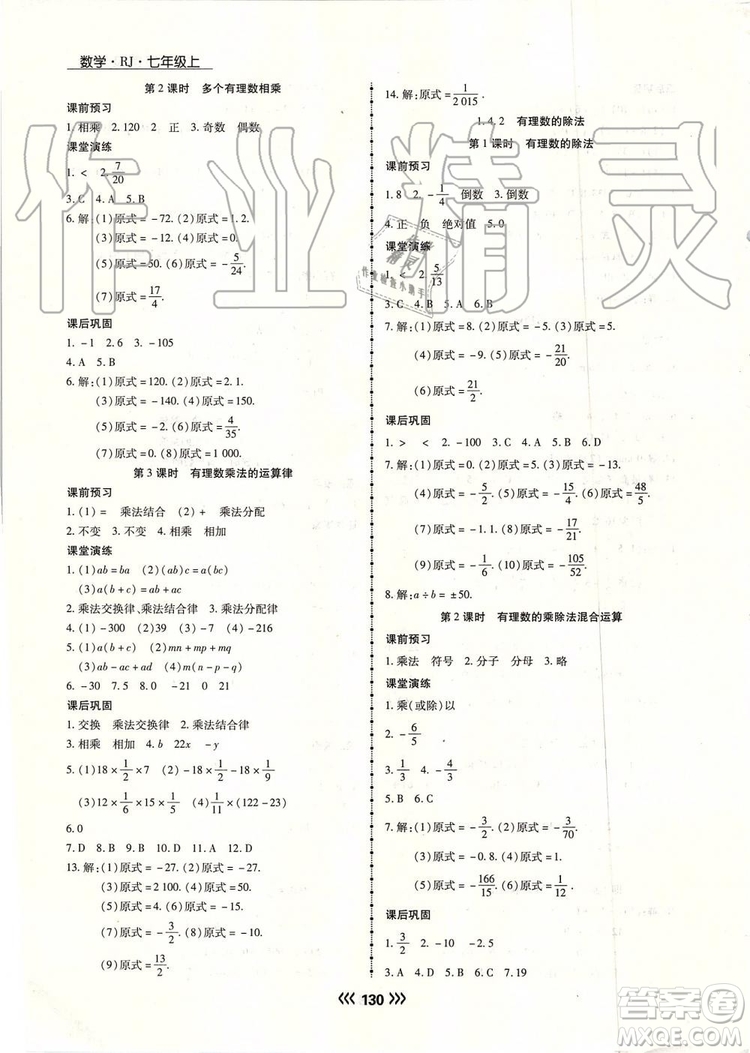 数学·RJ·七年级上
第2课时 多个有理数相乘
课前预习
1. 相乘 2. 120 2 正 3. 奇数 偶数
课堂演练
1. < 2. 7/20
3. C 4. A 5. B
6. 解:(1)原式=-72. (2)原式=1.2.
(3)原式=-18. (4)原式=0.
(5)原式=50. (6)原式=-5/24.
(7)原式=17/4.
课后巩固
1. -1 2. 6 3. -105
4. A 5. B
6. 解:(1)原式=120. (2)原式=2.1.
(3)原式=-140. (4)原式=150.
(5)原式=-2. (6)原式=4/35.
(7)原式=0. (8)原式=1 000.
第3课时 有理数乘法的运算律
课前预习
1. (1)= 乘法结合 (2)+ 乘法分配
2. 不变 3. 不变 4. 相乘 相加
课堂演练
1. (1)ab=ba (2)(ab)c=a(bc)
(3)a(b+c)=ab+ac
2. 乘法交换律、乘法结合律 3. 乘法分配律
4. (1)-300 (2)39 (3)-7 (4)-216
5. (1)a(b+c) (2)mn+mp+mt
(3)ab-ac+ad (4)-mn+mp-mt
6. -30 7. 5 8. 0 9. -21 10. B
课后巩固
1. 交换 乘法交换律 2. 乘法结合律
3. 相乘 相加 4. b 22x -y
5. (1)18×1/2×7 (2)18×1/2-18×1/9
(3)12×1/6×15×1/5 (4)1/11×(122-23)
6. 0
7. D 8. B 9. D 10. C 11. A 12. D
13. 解:(1)原式=-27. (2)原式=-27.
(3)原式=2 100. (4)原式=0.
(5)原式=9. (6)原式=2.
(7)原式=-3/2. (8)原式=-9.
(9)原式=5/3.
14. 解:原式=1/2 015.
1.4.2 有理数的除法
第1课时 有理数的除法
课前预习
1. 8 2. -1/4 3. 倒数 倒数
4. 正 负 绝对值 5. 0
课堂演练
1. < 2. 5/13
3. B 4. A 5. C 6. C
7. 解:(1)原式=8. (2)原式=-5. (3)原式=-5.
(4)原式=-9. (5)原式=-21/20.
(6)原式=21/2.
课后巩固
1. > < 2. -100 3. C 4. A 5. B 6. D
7. 解:(1)原式=5. (2)原式=5. (3)原式=-13.
(4)原式=-5/2. (5)原式=-15/4. (6)原式=48/5.
(7)原式=-1.1. (8)原式=-17/21.
(9)原式=-1/6. (10)原式=-105/52.
8. 解:a÷b=±50.
第2课时 有理数的乘除法混合运算
课前预习
1. 乘法 符号 2. 分子 分母 3. 略
课堂演练
1. 乘(或除)以
2. -6/5
3. 1/3 4. -1/3
5. B 6. C
7. 解:(1)原式=-3/2. (2)原式=-3/70.
(3)原式=-0.8. (4)原式=-1.
(5)原式=-166/15. (6)原式=-1/12.
课后巩固
1. 3/2 2. -10 -2.5
3. A 4. D 5. C 6. C 7. 19
130
作业精灵
答案圈
MXQE.COM